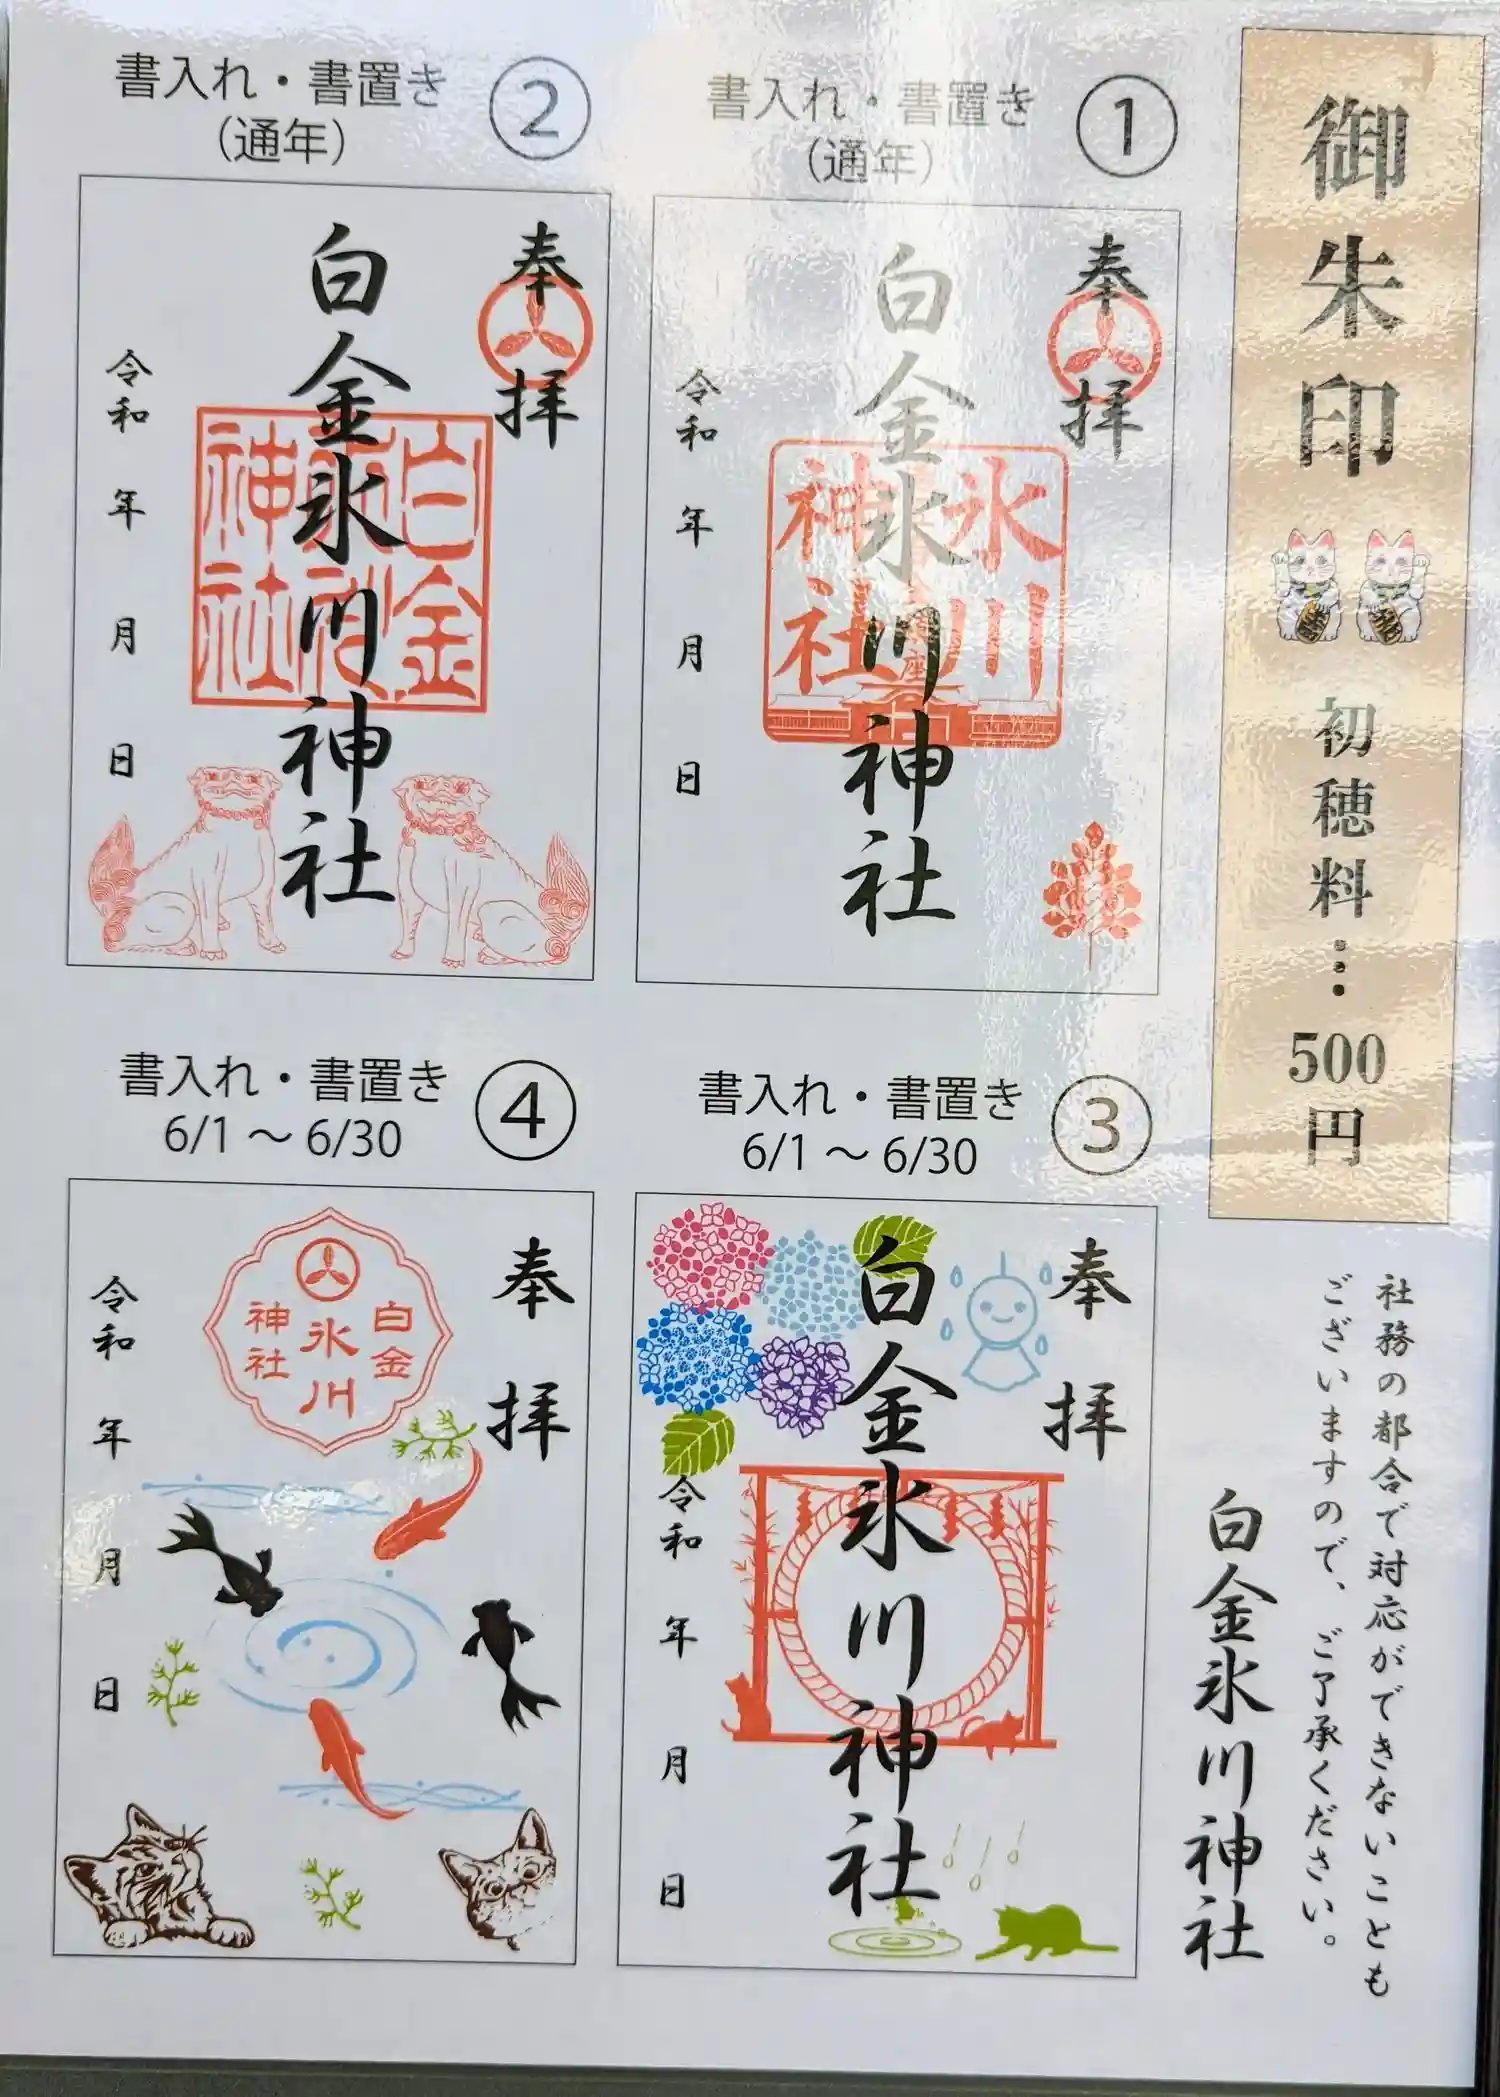 御朱印
初穂料…500円
①
書入れ・書置き
(通年)
奉拝
白金氷川神社
氷川
神社
令和 年 月 日
②
書入れ・書置き
(通年)
奉拝
白金氷川神社
白金
神社
令和 年 月 日
③
書入れ・書置き
6/1～6/30
奉拝
白金氷川神社
令和 年 月 日
④
書入れ・書置き
6/1～6/30
奉拝
白金
氷川
神社
令和 年 月 日
社務の都合で対応ができないことも
ございますので、ご了承ください。
白金氷川神社